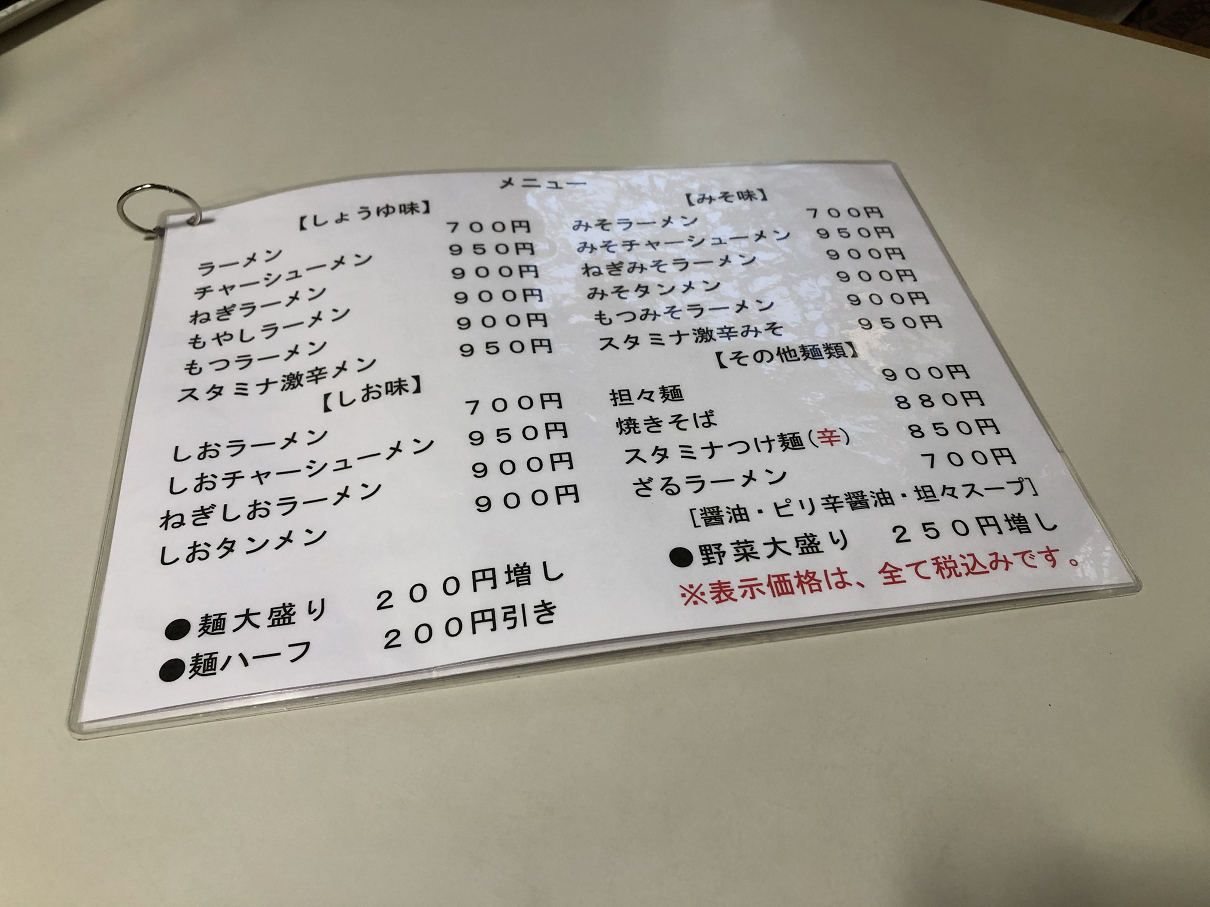 メニュー
【しょうゆ味】
ラーメン　７００円
チャーシューメン　９５０円
ねぎラーメン　９００円
もやしラーメン　９００円
もつラーメン　９００円
スタミナ激辛メン　９５０円
【しお味】
しおラーメン　７００円
しおチャーシューメン　９５０円
ねぎしおラーメン　９００円
しおタンメン　９００円
●麺大盛り　２００円増し
●麺ハーフ　２００円引き
【みそ味】
みそラーメン　７００円
みそチャーシューメン　９５０円
ねぎみそラーメン　９００円
みそタンメン　９００円
もつみそラーメン　９００円
スタミナ激辛みそ　９５０円
【その他麺類】
担々麺　９００円
焼きそば　８８０円
スタミナつけ麺（辛）　８５０円
ざるラーメン　７００円
［醤油・ピリ辛醤油・坦々スープ］
●野菜大盛り　２５０円増し
※表示価格は、全て税込みです。